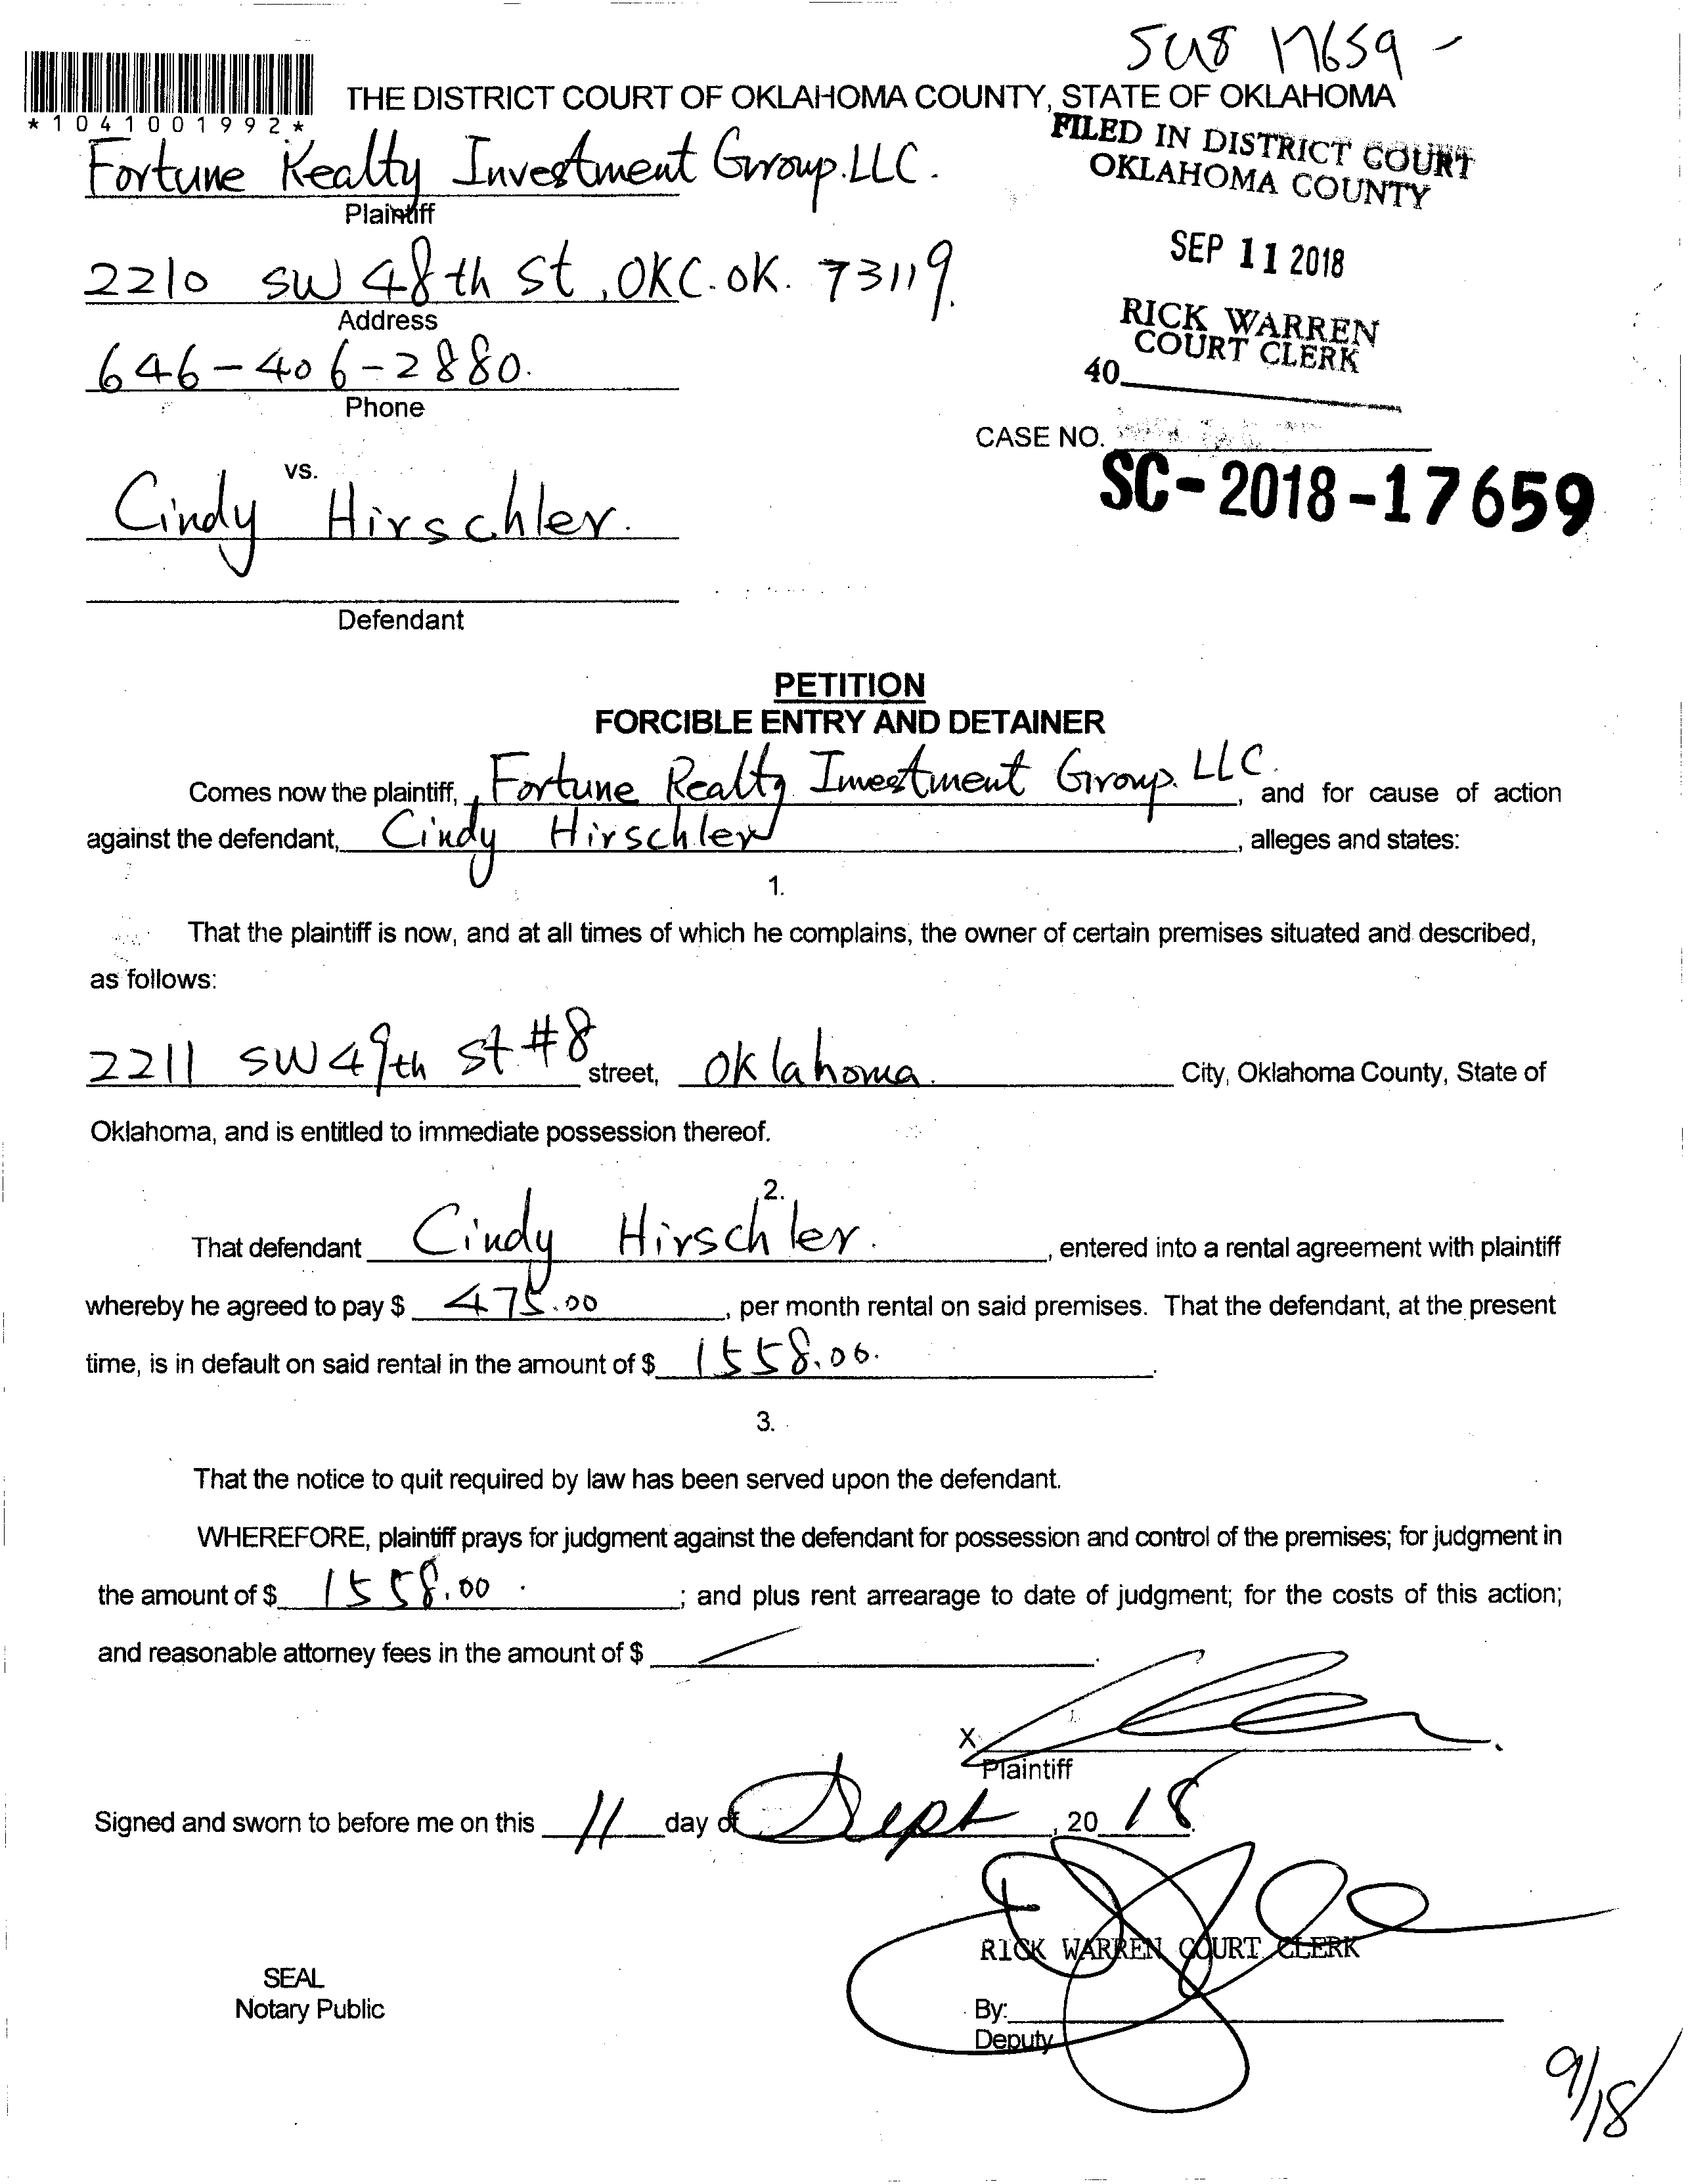 SC18 17659 -
THE DISTRICT COURT OF OKLAHOMA COUNTY, STATE OF OKLAHOMA
*1041001992*
FILED IN DISTRICT COURT
OKLAHOMA COUNTY
Fortune Realty Investment Group.LLC.
Plaintiff
SEP 11 2018
2210 SW 48th St, OKC. OK. 73119.
Address
RICK WARREN
COURT CLERK
646-406-2880.
40
Phone
CASE NO.
SC-2018-17659
vs.
Cindy Hirschler.
Defendant
PETITION
FORCIBLE ENTRY AND DETAINER
Comes now the plaintiff, Fortune Realty Investment Group. LLC., and for cause of action
against the defendant, Cindy Hirschler, alleges and states:
1.
That the plaintiff is now, and at all times of which he complains, the owner of certain premises situated and described,
as follows:
2211 SW 49th St #8 street, Oklahoma. City, Oklahoma County, State of
Oklahoma, and is entitled to immediate possession thereof.
2.
That defendant Cindy Hirschler., entered into a rental agreement with plaintiff
whereby he agreed to pay $ 475.00, per month rental on said premises. That the defendant, at the present
time, is in default on said rental in the amount of $ 1558.00.
3.
That the notice to quit required by law has been served upon the defendant.
WHEREFORE, plaintiff prays for judgment against the defendant for possession and control of the premises; for judgment in
the amount of $ 1558.00.; and plus rent arrearage to date of judgment; for the costs of this action;
and reasonable attorney fees in the amount of $
X
Plaintiff
Signed and sworn to before me on this 11 day of Sept, 20 18.
RICK WARREN COURT CLERK
SEAL
Notary Public
By:
Deputy
9/18